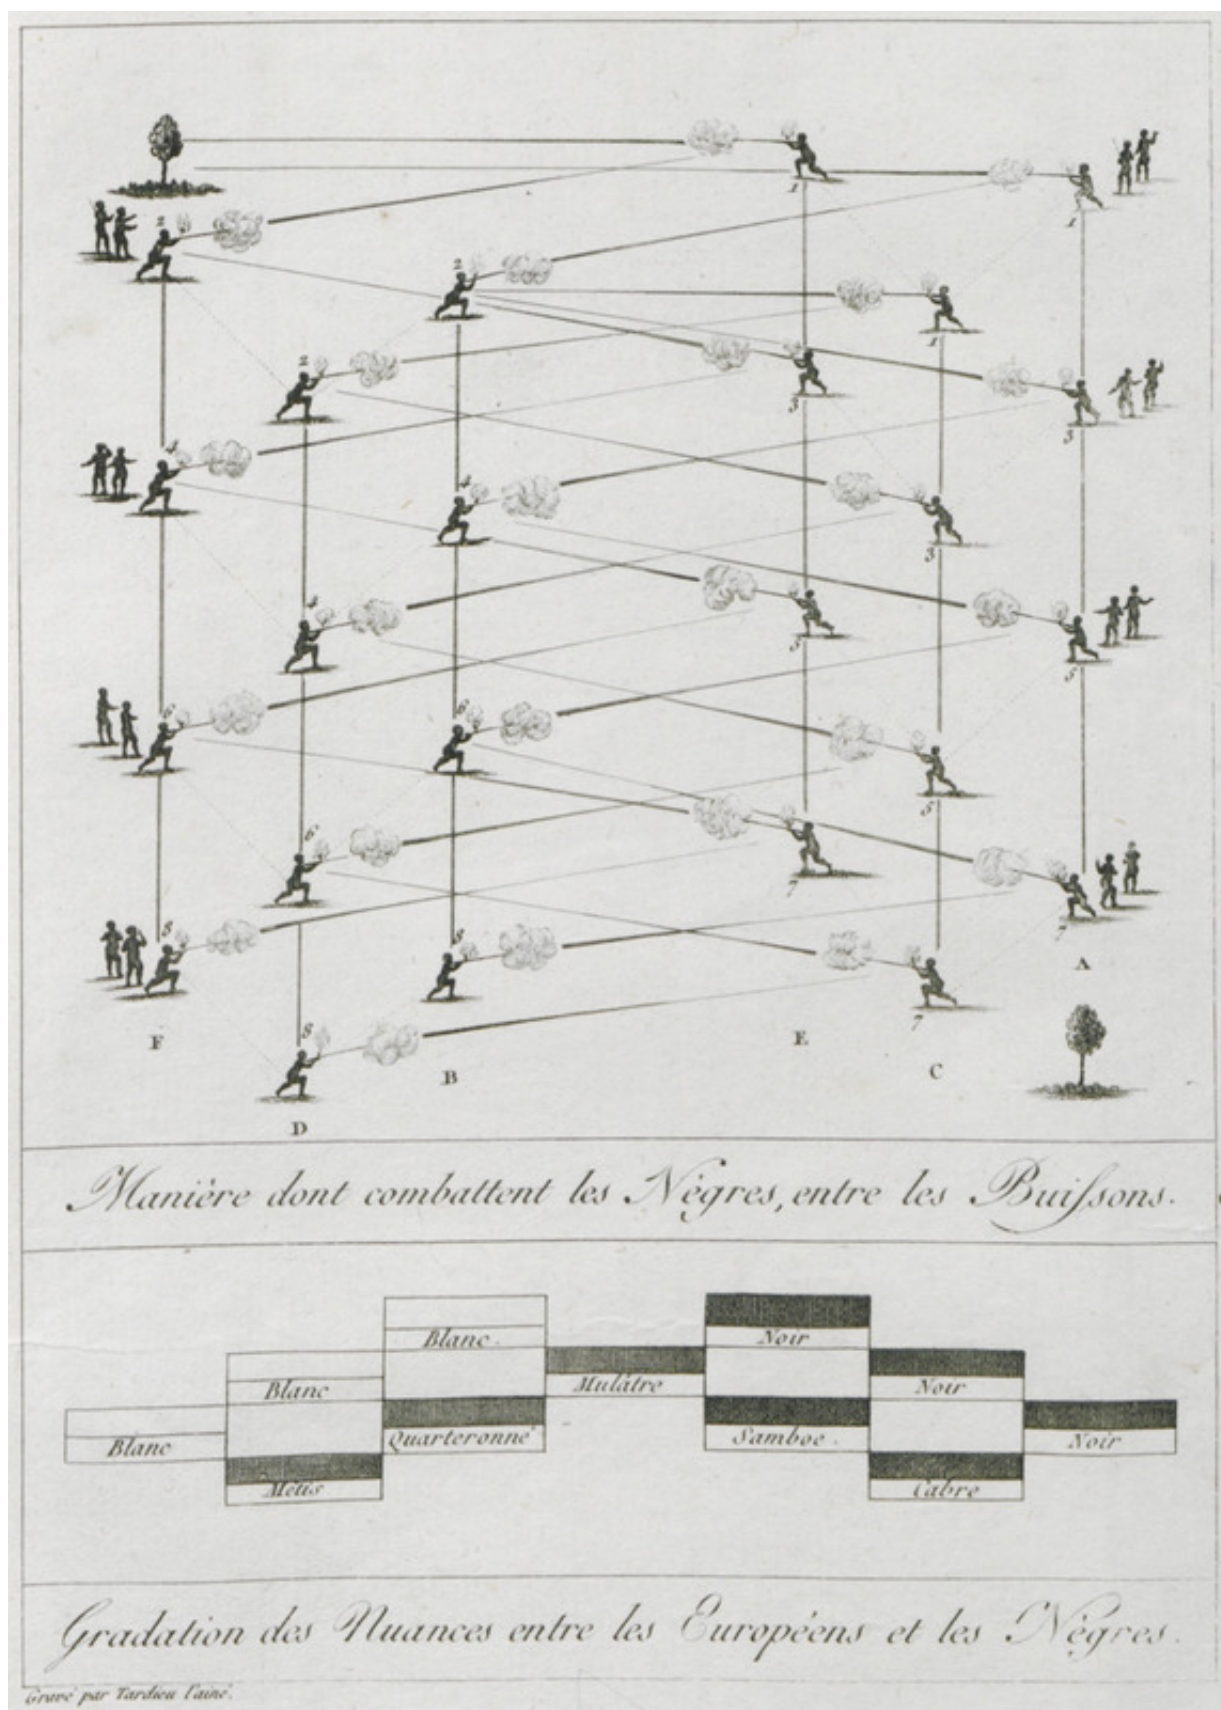 1
1
2
2
1
2
3
3
4
4
3
4
5
5
6
6
5
6
7
7
8
8
7
8
A
F
E
B
C
D
Manière dont combattent les Nègres, entre les Buiſsons.
Blanc.
Noir
Blanc
Mulâtre
Noir
Blanc
Quarteronné
Samboe.
Noir
Métis
Cabre
Gradation des Nuances entre les Européens et les Nègres.
Gravé par Tardieu l'ainé.